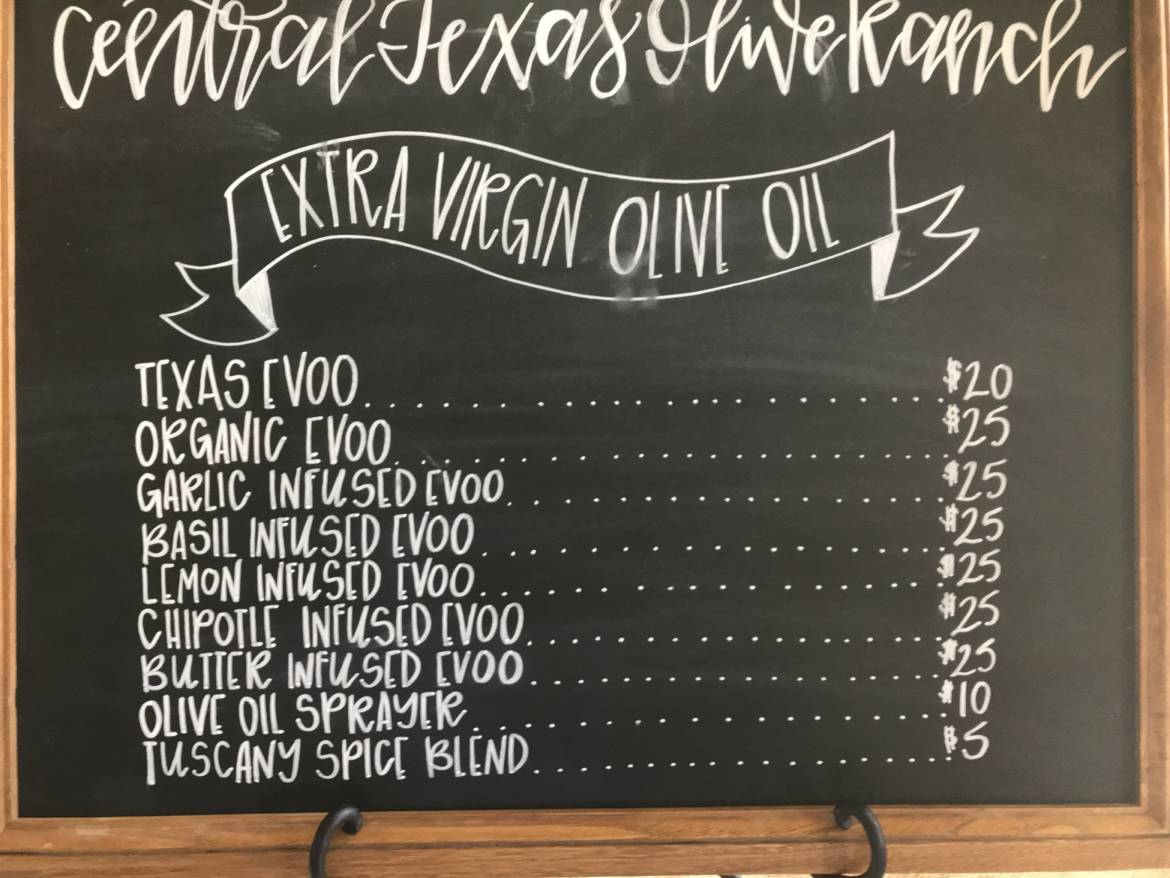 Central Texas Olive Ranch
EXTRA VIRGIN OLIVE OIL
TEXAS EVOO . . . . . . . . . . . . . . . . . . . . . . $20
ORGANIC EVOO . . . . . . . . . . . . . . . . . . . . . . $25
GARLIC INFUSED EVOO . . . . . . . . . . . . . . . . . . $25
BASIL INFUSED EVOO . . . . . . . . . . . . . . . . . . . $25
LEMON INFUSED EVOO . . . . . . . . . . . . . . . . . . . $25
CHIPOTLE INFUSED EVOO . . . . . . . . . . . . . . . . . $25
BUTTER INFUSED EVOO . . . . . . . . . . . . . . . . . . $25
OLIVE OIL SPRAYER . . . . . . . . . . . . . . . . . . . $10
TUSCANY SPICE BLEND . . . . . . . . . . . . . . . . . . $5